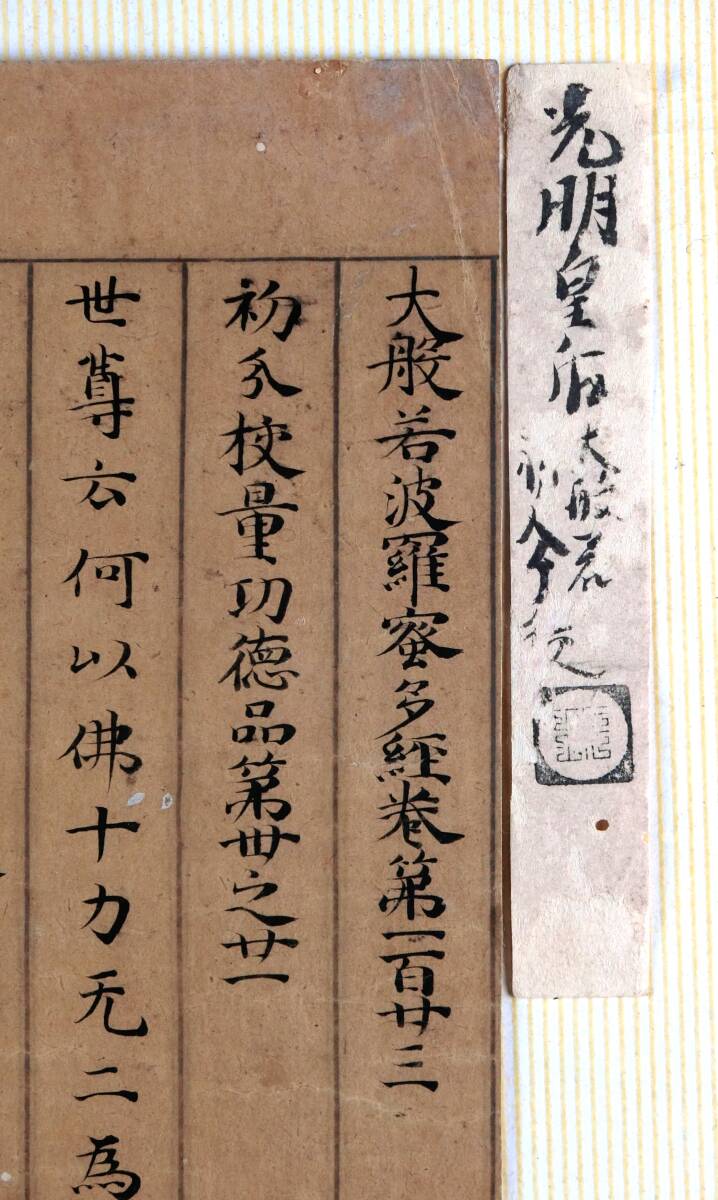 光明皇后
大般若
大般若波羅蜜多經卷第一百廿三
初分校量功德品第卅之廿一
世尊云何以佛十力无二為